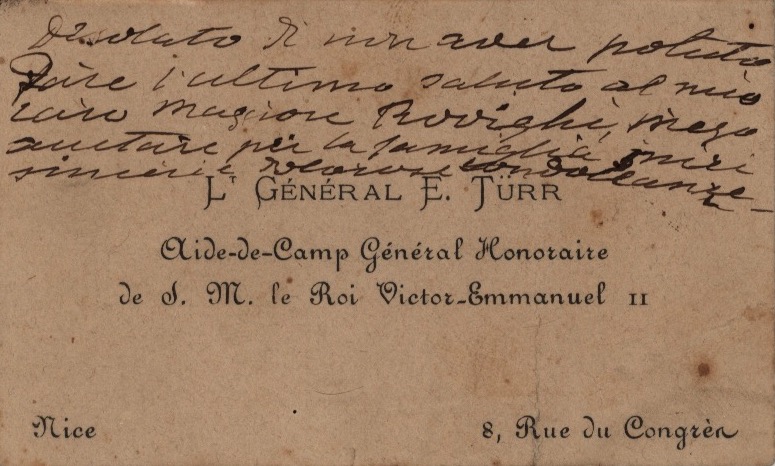 Desolato di non aver potuto
dare l'ultimo saluto al mio
caro Maggiore Rovighi, prego
per la famiglia i miei
sinceri condoglianze
Lᵀ GÉNÉRAL E. TÜRR
Aide-de-Camp Général Honoraire
de S. M. le Roi Victor-Emmanuel II
Nice
8, Rue du Congrès